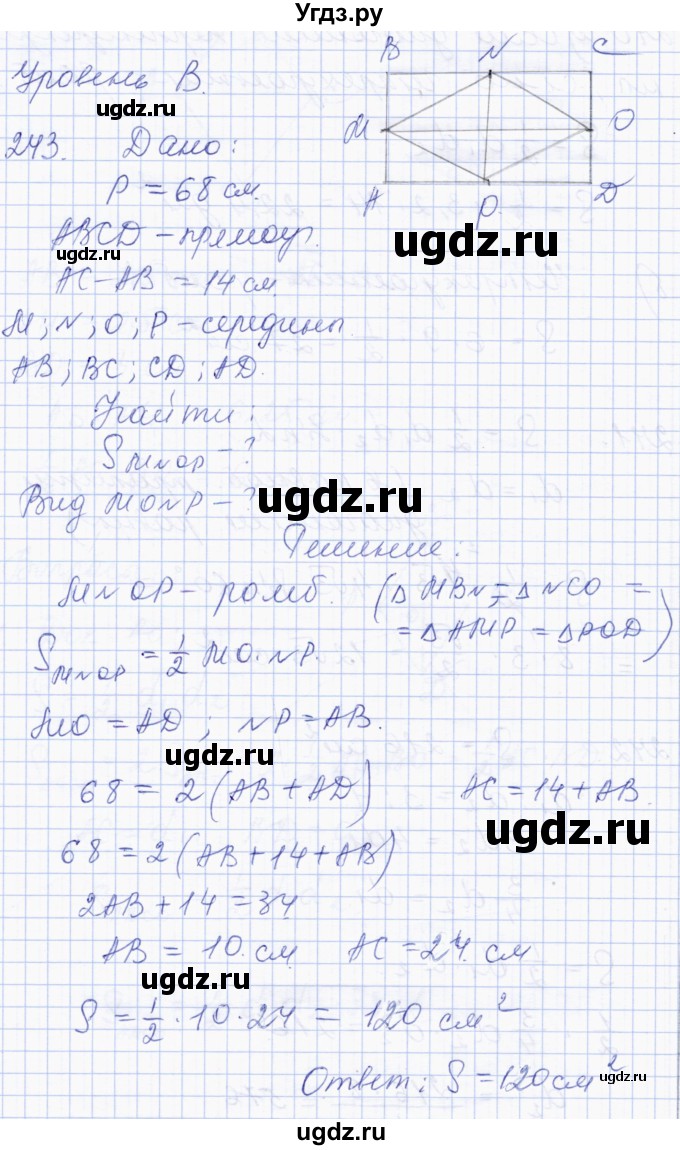 Угдз.ру
Уровень В.
ugdz.ru
B N C
M O
A P D
243. Дано:
P = 68 см.
ABCD – прямоуг.
ugdz.ru
AC – AB = 14 см
M; N; O; P – середины
AB; BC; CD; AD.
Найти:
ugdz.ru
S MNOP – ?
Вид MONP – ?
ugdz.ru
Решение:
MNOP – ромб. (△ MBN = △ NCO =
= △ AMP = △ POD)
S MNOP = 1/2 MO · NP.
MO = AD; NP = AB.
ugdz.ru
68 = 2 (AB + AD) AC = 14 + AB.
ugdz.ru
68 = 2 (AB + 14 + AB)
2AB + 14 = 34
AB = 10 см. AC = 24 см
ugdz.ru
S = 1/2 · 10 · 24 = 120 см²
Ответ: S = 120 см²
ugdz.ru
ugdz.ru